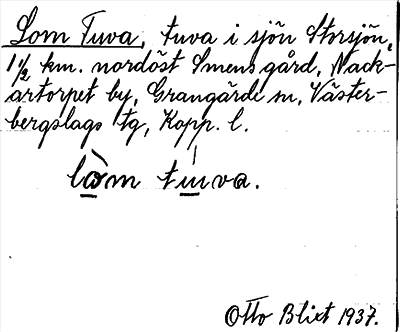 Lom Tuva, tuva i sjön Storsjön,
1 1/2 km. nordöst Smens gård, Nack-
artorpet by, Grangärde sn, Väster-
bergslags tg, Kopp. l.
lòm tuva.
Otto Blixt 1937.